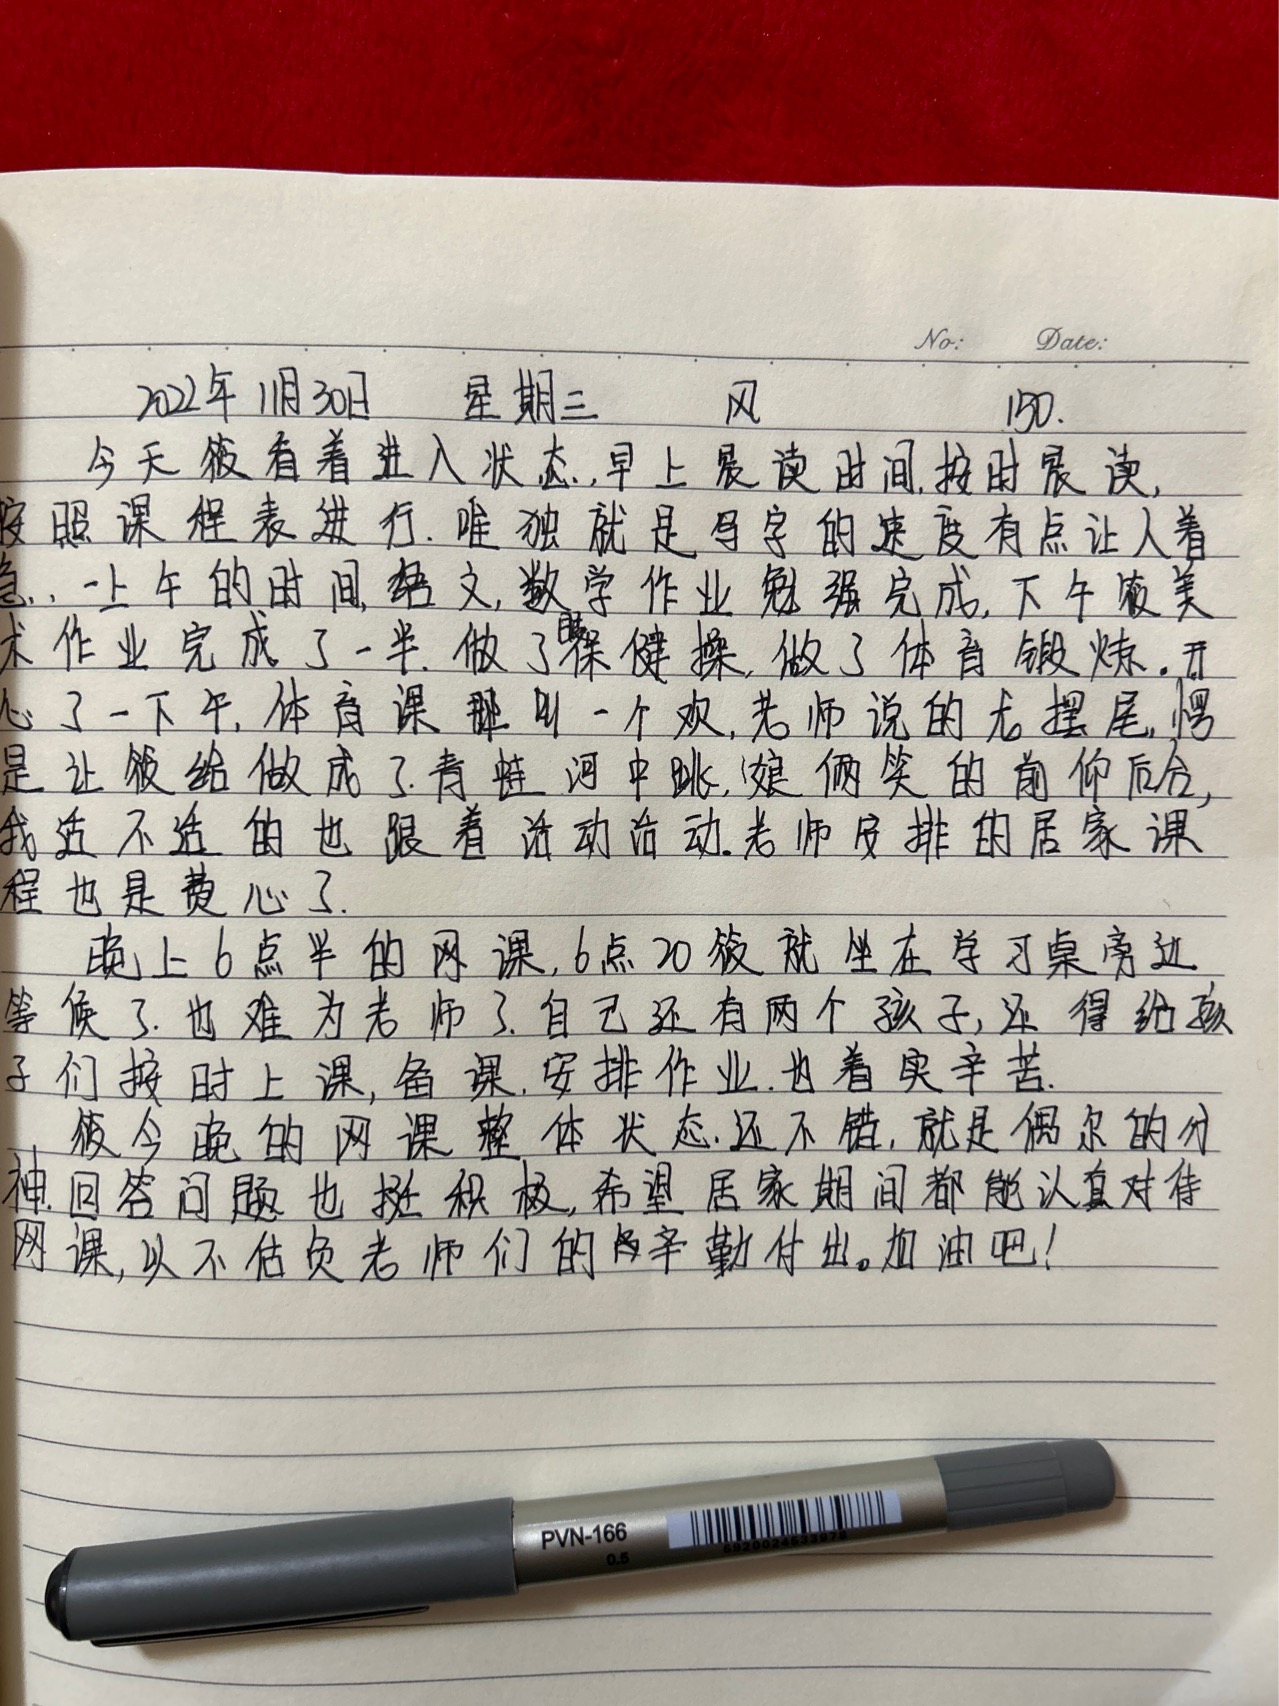 No: Date:
2022年11月30日 星期三 风 150.
今天筱看着进入状态.,早上晨读时间,按时晨读,
按照课程表进行.唯独就是写字的速度有点让人着
急..一上午的时间,语文,数学作业勉强完成,下午筱美
术作业完成了一半.做了眼保健操,做了体育锻炼。开
心了一下午,体育课那叫一个欢,老师说的龙摆尾,愣
是让筱给做成了.青蛙河中跳,娘俩笑的前仰后合,
我适不适的也跟着活动活动.老师安排的居家课
程也是费心了.
晚上6点半的网课,6点20筱就坐在学习桌旁边
等候了.也难为老师了.自己还有两个孩子,还得给孩
子们按时上课,备课.安排作业.也着实辛苦.
筱今晚的网课整体状态.还不错,就是偶尔的分
神.回答问题也挺积极,希望居家期间都能认真对待
网课,以不估负老师们的辛勤付出。加油吧!
PVN-166
0.5